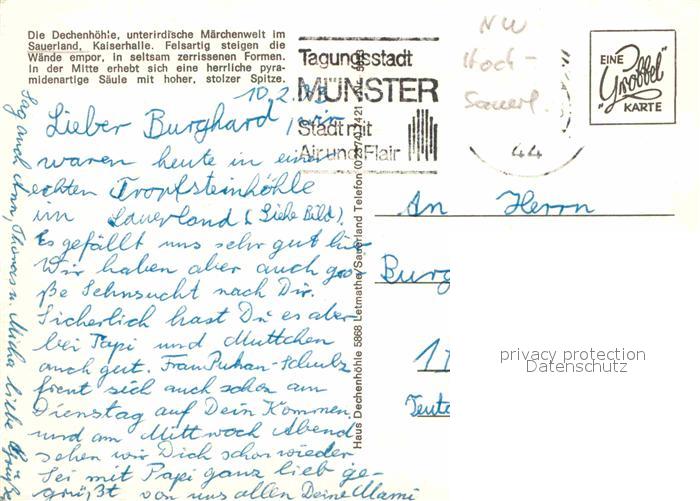 Die Dechenhöhle, unterirdische Märchenwelt im
Sauerland, Kaiserhalle. Felsartig steigen die
Wände empor, in seltsam zerrissenen Formen.
In der Mitte erhebt sich eine herrliche pyra-
midenartige Säule mit hoher, stolzer Spitze.
Tagungsstadt
MÜNSTER
Stadt mit
Air und Flair
44
NW
Hoch-
Sauerl.
EINE
"Groffel"
KARTE
10.2.
Lieber Burghard, wir
waren heute in einer
echten Tropfsteinhöhle
im Sauerland (Siehe Bild).
Es gefällt uns sehr gut hier
Wir haben aber auch gro-
ße Sehnsucht nach Dir.
Sicherlich hast Du es aber
bei Papi und Muttchen
auch gut. Frau Puhan-Schulz
freut sich auch schon am
Dienstag auf Dein Kommen,
und am Mittwoch Abend
sehen wir Dich schon wieder
Sei mit Papi ganz lieb ge-
grüßt von uns allen Deine Mami
Sag auch Thomas u. Micha liebe Grüße
Haus Dechenhöhle 5868 Letmathe/Sauerland Telefon (02374)
An Herrn
Burg
Teuto
privacy protection
Datenschutz